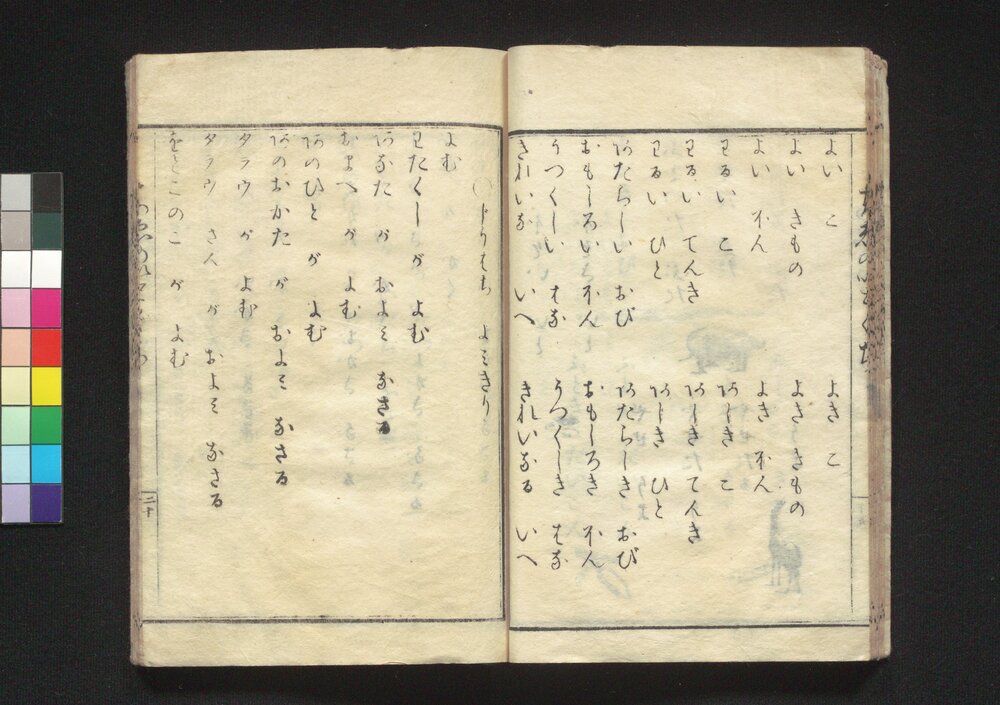 よい こ　よき こ
よい きもの　よき きもの
よい ほん　よき ほん
わるい こ　あしき こ
わるい てんき　あしき てんき
わるい ひと　あしき ひと
あたらしい おび　あたらしき おび
おもしろい ほん　おもしろき ほん
うつくしい はな　うつくしき はな
きれいな いへ　きれいなる いへ
よむ
わたくし が よむ
あなた が およみ なさる
おまへ が よむ
あのひと が よむ
あのおかた が およみ なさる
タラウ が よむ
タラウ さん が およみ なさる
をとこのこ が よむ
二十